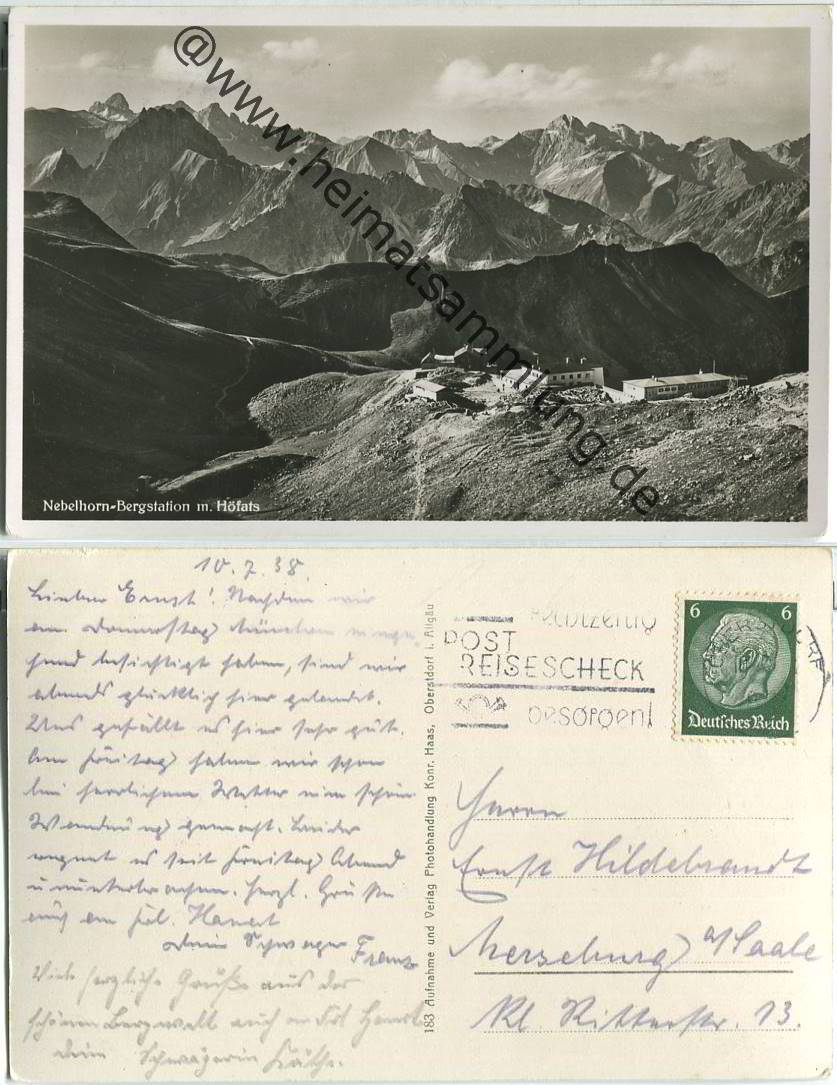 @www.heimatsammlung.de
Nebelhorn-Bergstation m. Höfats
10.7.38.
Lieber Ernst! Nachdem wir
am Donnerstag München einge-
hend besichtigt haben, sind wir
abends glücklich hier gelandet.
Uns gefällt es hier sehr gut.
Am Freitag haben wir schon
bei herrlichem Wetter eine schöne
Wanderung gemacht. Leider
regnet es seit Freitag Abend
ununterbrochen. Herzl. Grüße
auch an Frl.
Dein Schwager Franz
Viele herzliche Grüße aus der
schönen Bergwelt auch an Frl
Deine Schwägerin Käthe.
183 Aufnahme und Verlag Photohandlung Konr. Haas, Oberstdorf i. Allgäu
Rechtzeitig
POST
REISESCHECK
besorgen!
6 6
Deutsches Reich
Herrn
Ernst Hildebrandt
Merseburg a/Saale
Kl. Ritterstr. 13.